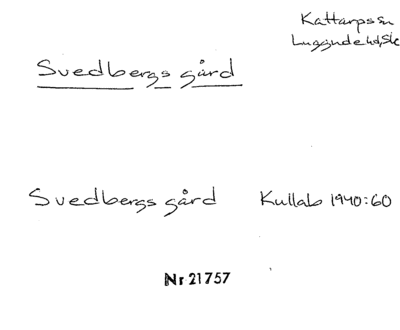 Kattarps sn
Luggude hd, Sk
Svedbergs gård
Svedbergs gård Kullab 1940:60
Nr 21757